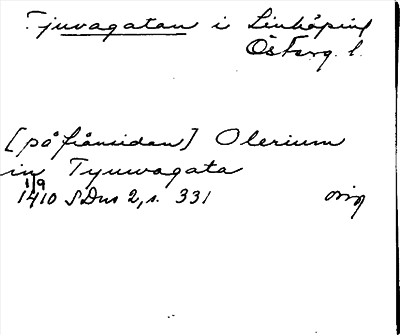 Tjuvagatan i Linköping
Österg. l.
[på frånsidan] Olerium
in Tyuwagata
1/9
1410 SDns 2, s. 331 orig